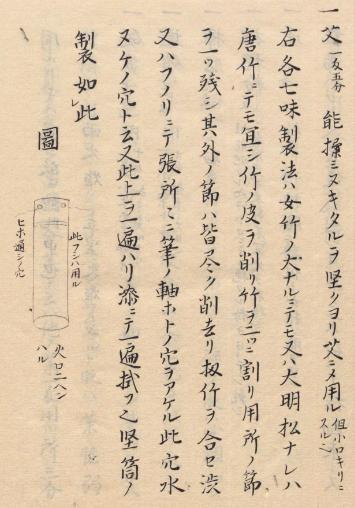 一艾一匁五分 能揉ミヌキタルヲ堅クヨリ艾ニメ用ル 但小口キリニスルヿ
右各七味製法ハ女竹ノ大ナルニテモ又ハ大明松ナレハ
唐竹ニテモ宜シ竹ノ皮ヲ削リ竹ヲ二ツニ割リ用所ノ節
ヲ一ツ残シ其外ノ節ハ皆尽ク削去リ扨竹ヲ合セ渋
又ハフノリニテ張所々ニ筆ノ軸ホトノ穴ヲアケル此穴水
ヌケノ穴ト云又此上ヲ一遍ハリ漆ニテ一遍拭フ之堅筒ノ
製如レ此
圖
此フシハ用ル
ヒホ通シノ穴
火口ニヘン
ハル